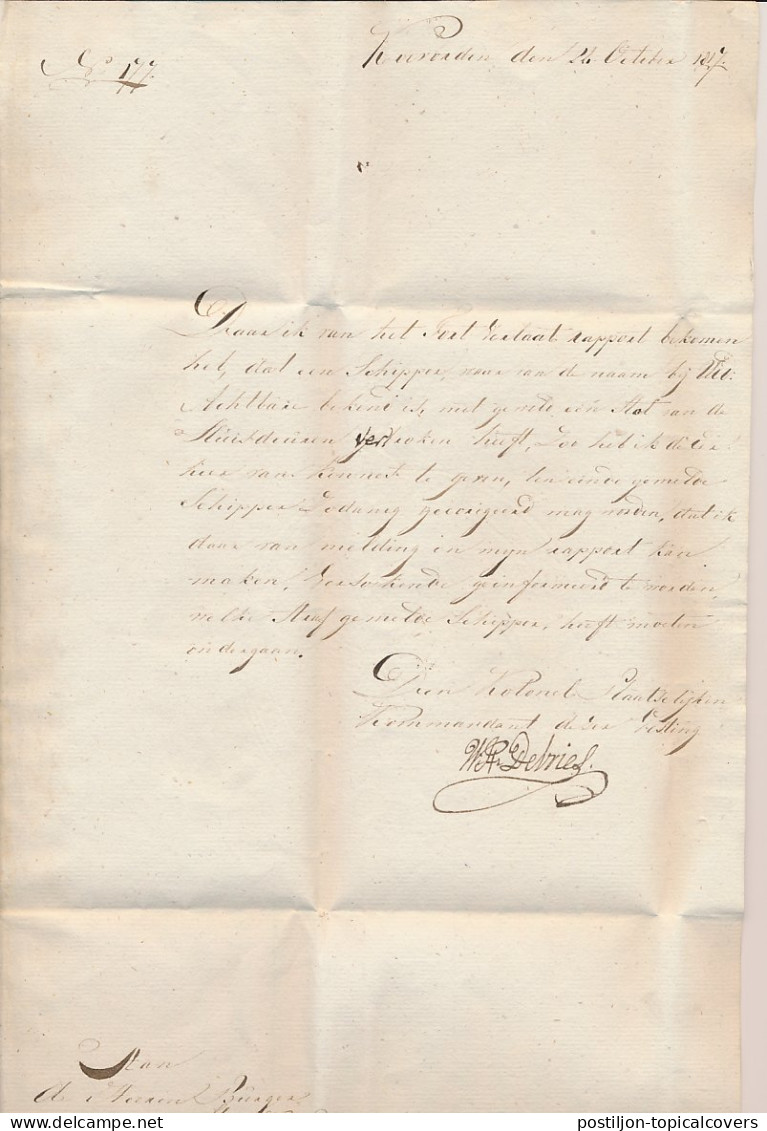 No 177.
Koevorden den 26 October 1817.
Daar ik van het Fort Verlaat rapport bekomen
heb, dat een Schipper, waar van de naam bij UEd.
Achtbare bekend is, met geweld een slot van de
Sluisdeuren verbroken heeft, Zoo heb ik de
van kennis te geven, ten einde gemelde
Schipper Zodanig gecorigeerd mag worden, dat ik
daar van melding in mijn rapport kan
maken, Verzoekende geinformeerd te worden,
welke straf gemelde Schipper, heeft moeten
ondergaan.
Den Kolonel Plaatselijken
Kommandant dezer Vesting
W.A. Debries.
Aan
de Heeren Burge
postiljon-topicalcovers
delcampe.net